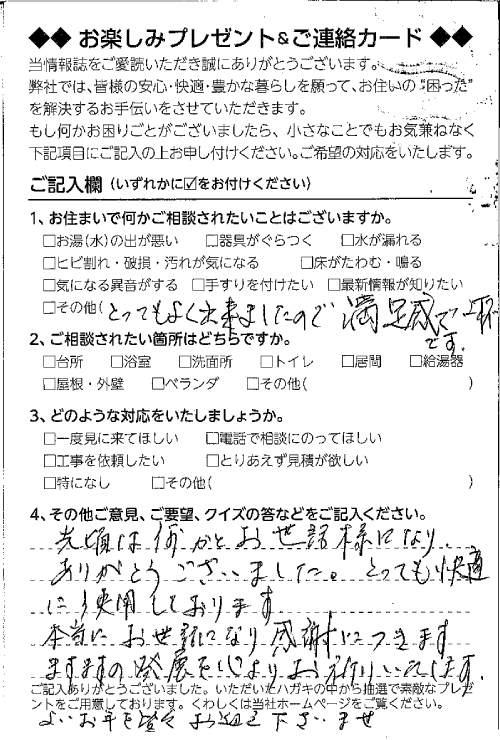 ◆◆ お楽しみプレゼント&ご連絡カード ◆◆
当情報誌をご愛読いただき誠にありがとうございます。
弊社では、皆様の安心・快適・豊かな暮らしを願って、お住いの“困った”
を解決するお手伝いをさせていただきます。
もし何かお困りごとがございましたら、小さなことでもお気兼ねなく
下記項目にご記入の上お申し付けください。ご希望の対応をいたします。
ご記入欄 (いずれかに☑をお付けください)
1、お住まいで何かご相談されたいことはございますか。
□お湯(水)の出が悪い □器具がぐらつく □水が漏れる
□ヒビ割れ・破損・汚れが気になる □床がたわむ・鳴る
□気になる異音がする □手すりを付けたい □最新情報が知りたい
□その他(とってもよく出来ましたので満足感で一杯
です。
2、ご相談されたい箇所はどちらですか。
□台所 □浴室 □洗面所 □トイレ □居間 □給湯器
□屋根・外壁 □ベランダ □その他( )
3、どのような対応をいたしましょうか。
□一度見に来てほしい □電話で相談にのってほしい
□工事を依頼したい □とりあえず見積が欲しい
□特になし □その他( )
4、その他ご意見、ご要望、クイズの答などをご記入ください。
先頃は何かとお世話様になり
ありがとうございました。とっても快適
に使用しております
本当にお世話になり感謝につきます
ますますの発展を心よりお祈りいたします。
ご記入ありがとうございました。いただいたハガキの中から抽選で素敵なプレゼ
ントをご用意しております。くわしくは当社ホームページをご覧ください。
よいお年を お迎え下さいませ